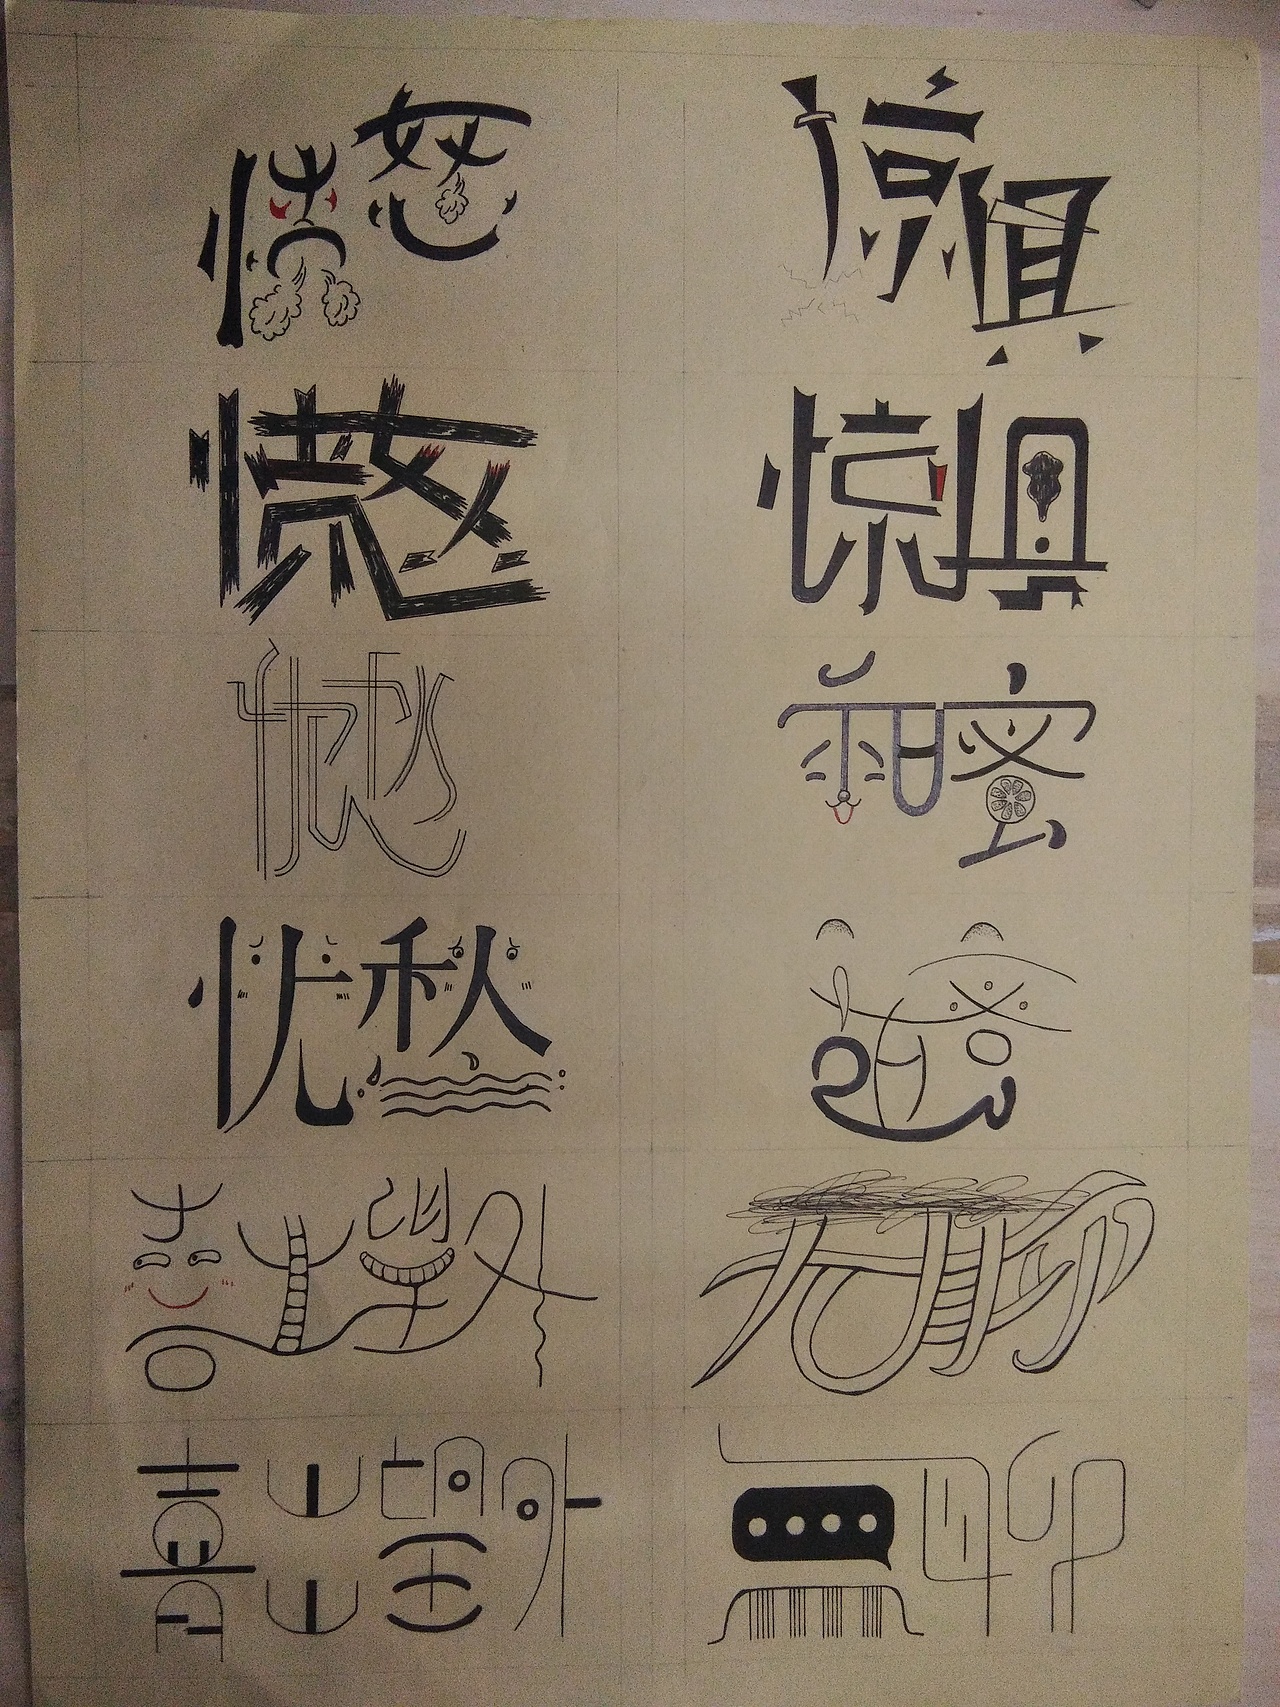 愤怒 惊惧
愤怒 惊惧
忧愁 甜蜜
忧愁 甜蜜
喜出望外 无聊
喜出望外 无聊